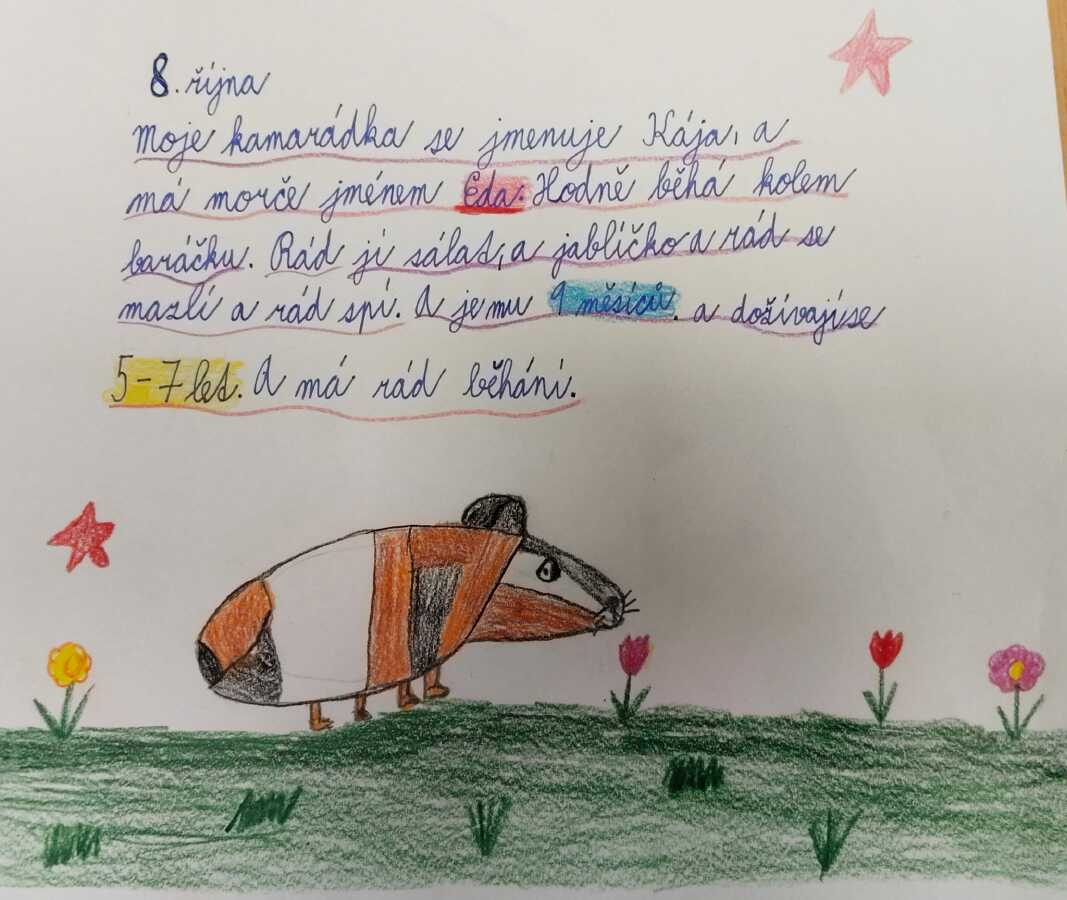 8. října
Moje kamarádka se jmenuje Kája, a
má morče jménem Eda. Hodně běhá kolem
baráčku. Rád jí sálat, a jablíčko a rád se
mazlí a rád spí. A je mu 9 měsíců. a dožívají se
5-7 let. A má rád běhání.